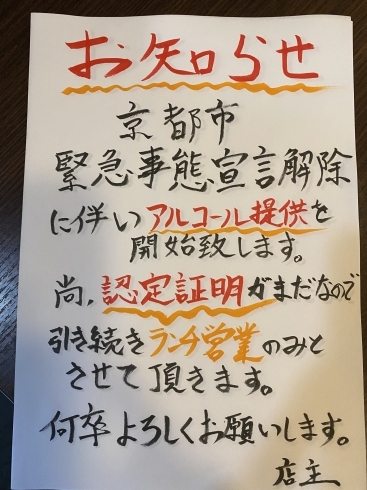 お知らせ
京都市
緊急事態宣言解除
に伴いアルコール提供を
開始致します。
尚、認定証明がまだなので
引き続きランチ営業のみと
させて頂きます。
何卒よろしくお願いします。
店主